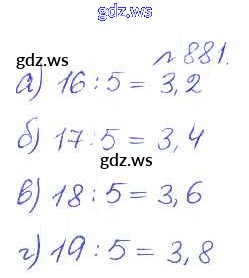 gdz.ws
№ 881.
gdz.ws
а) 16 : 5 = 3,2
б) 17 : 5 = 3,4
gdz.ws
в) 18 : 5 = 3,6
г) 19 : 5 = 3,8
gdz.ws